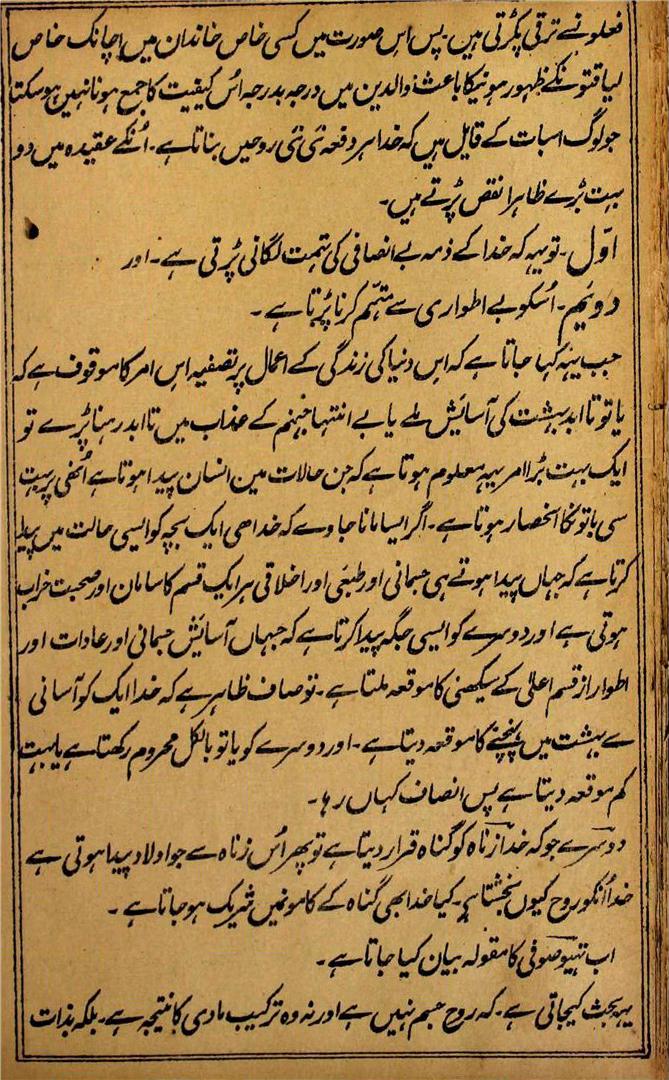 فعلونے ترقی پکڑتی ہیں۔ پس اس صورت میں کسی خاص خاندان میں اچانک خاص
لیاقتونکے ظہور ہونیکا باعث والدین میں درجہ بدرجہ اُس کیفیت کا جمع ہونا نہیں ہو سکتا
جو لوگ اسبات کے قایل ہیں کہ خدا ہر دفعہ نئی نئی روحیں بناتا ہے۔ اُنکے عقیدہ میں دو
بہت بڑے ظاہرا نقص پڑتے ہیں۔
اوّل۔ تو یہہ کہ خدا کے ذمہ بے انصافی کی تہمت لگانی پڑتی ہے۔ اور
دویم۔ اُسکو بے اطواری سے متہم کرنا پڑتا ہے۔
جب یہہ کہا جاتا ہے کہ اس دنیا کی زندگی کے اعمال پر تصفیہ اس امر کا موقوف ہے کہ
یا تو تا ابد بہشت کی آسایش ملے یا بے انتہا جہنم کے عذاب میں تا ابد رہنا پڑے تو
ایک بہت بڑا امر یہہ معلوم ہوتا ہے کہ جن حالات مین انسان پیدا ہوتا ہے اُنھی پر بہت
سی باتونکا انحصار ہوتا ہے۔ اگر ایسا مانا جاوے کہ خدا ھی ایک بچہ کو ایسی حالت میں پیدا
کرتا ہے کہ جہاں پیدا ہوتے ہی جسمانی اور طبعی اور اخلاقی ہر ایک قسم کا سامان اور صحبت خراب
ہوتی ہے اور دوسرے کو ایسی جگہ پیدا کرتا ہے کہ جہاں آسایش جسمانی اور عادات اور
اطوار از قسم اعلیٰ کے سیکھنی کا موقعہ ملتا ہے۔ تو صاف ظاہر ہے کہ خدا ایک کو آسانی
سے بہشت میں پہنچنے کا موقعہ دیتا ہے۔ اور دوسرے کو یا تو بالکل محروم رکھتا ہے یا بہت
کم موقعہ دیتا ہے پس انصاف کہاں رہا۔
دوسرے جو کہ خدا زناہ کو گناہ قرار دیتا ہے تو پھر اُس زناہ سے جو اولاد پیدا ہوتی ہے
خدا اُنکو روح کیوں بخشتا ہے۔ کیا خدا بھی گناہ کے کامونمیں شریک ہو جاتا ہے۔
اب تہیو صوفی کا مقولہ بیان کیا جاتا ہے۔
یہہ بحث کیجاتی ہے۔ کہ روح جسم نہیں ہے اور نہ وہ ترکیب مادی کا نتیجہ ہے۔ بلکہ بذات